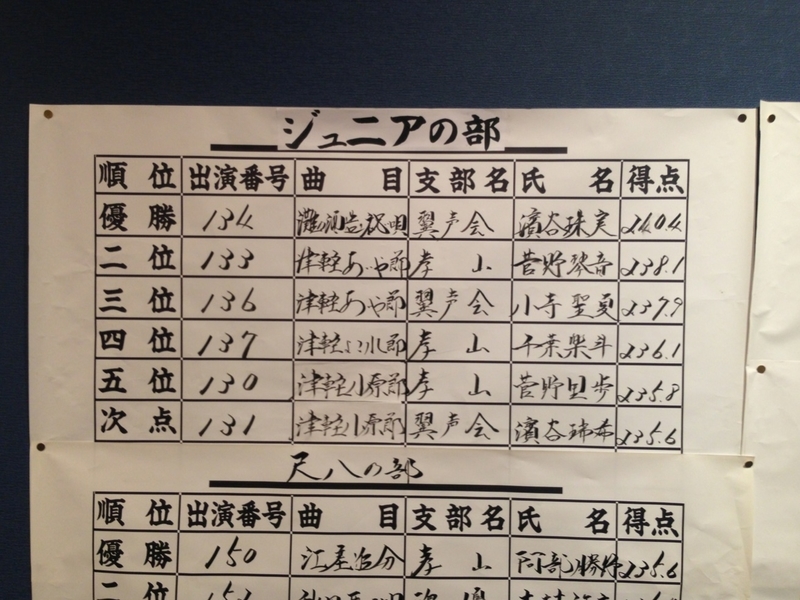 ジュニアの部
順位 出演番号 曲目 支部名 氏名 得点
優勝 134 翼声会 濱谷珠実 240.4
二位 133 津軽あいや節 孝山 菅野琴音 238.1
三位 136 津軽あいや節 翼声会 小寺聖夏 237.9
四位 137 津軽よされ節 孝山 千葉楽斗 236.1
五位 130 津軽小原節 孝山 菅野里歩 235.8
次点 131 津軽小原節 翼声会 濱谷瑞希 235.6
尺八の部
順位 出演番号 曲目 支部名 氏名 得点
優勝 150 江差追分 孝山 235.6
二位